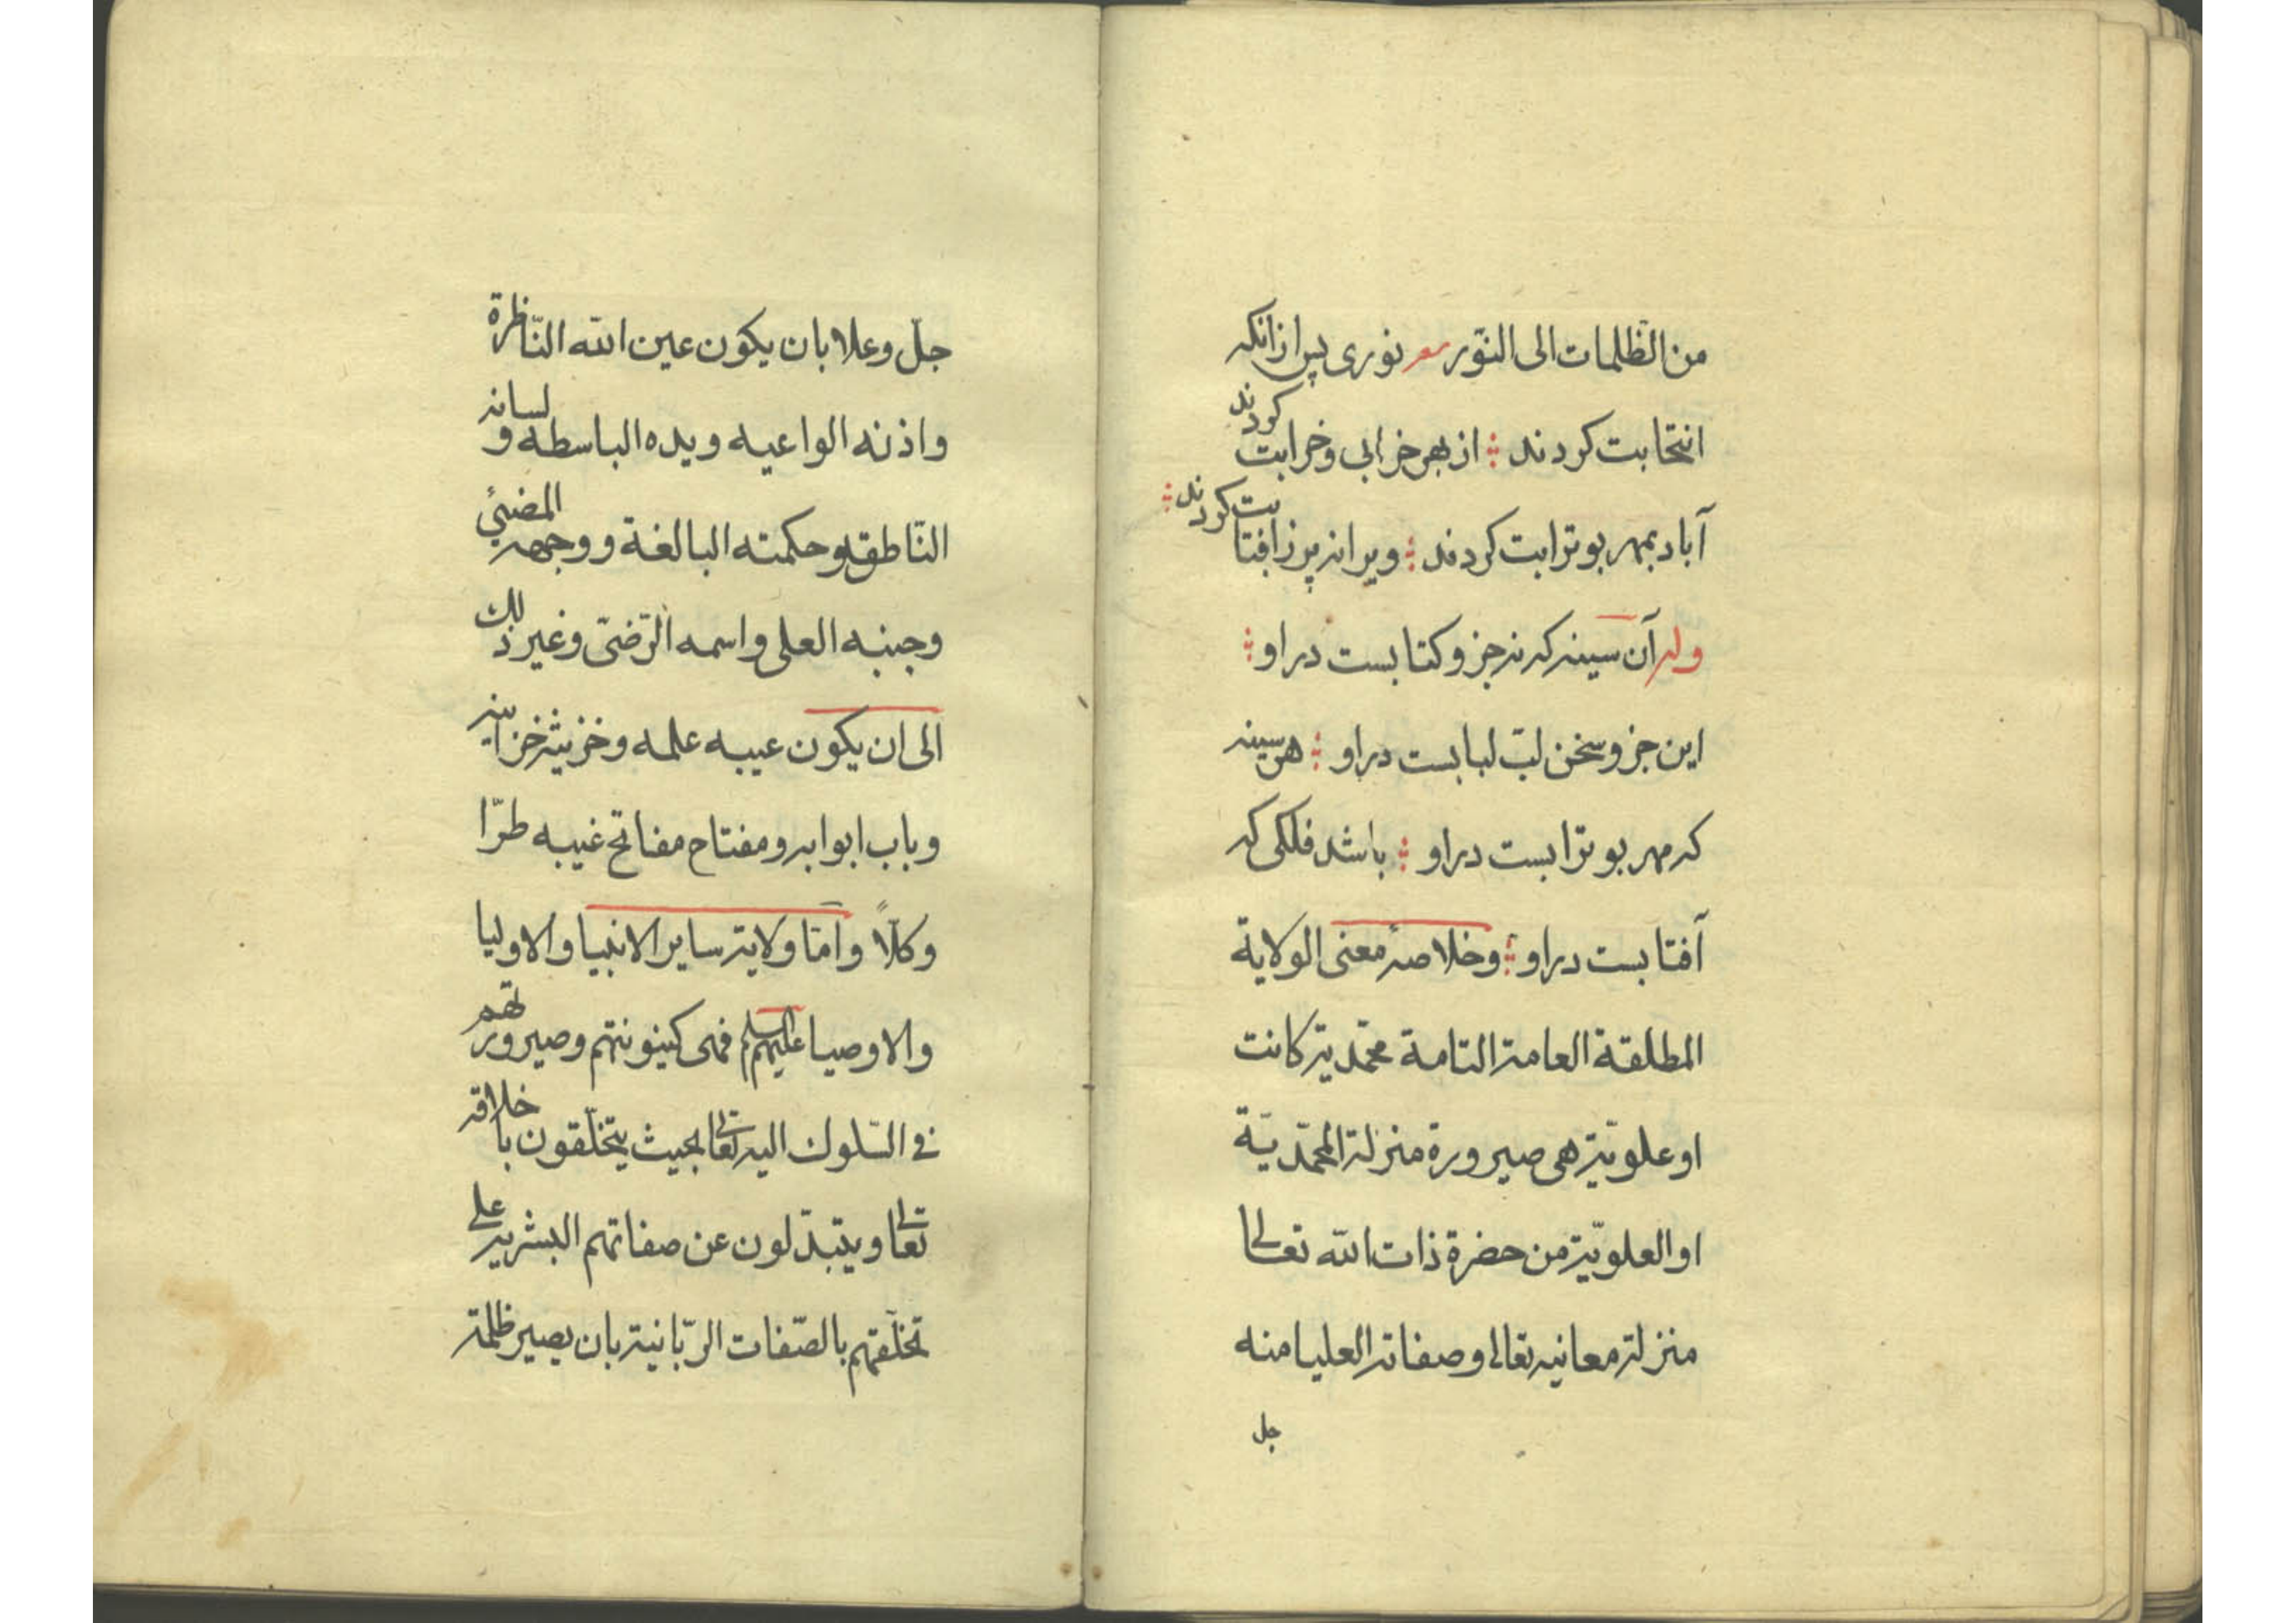 من الظّلمات الى النّور شعر نوری پس از انکه
انتخابت کردند ؛ از بهر خرابی و خرابت کردند
آباد بمهر بو ترابت کردند ؛ ویرانه پرز افتابت کردند ؛
وله آن سینه که نه جزو کتابست در او ؛
این جزو سخن لبّ لبابست در او ؛ هر سینه
که مهر بو ترابست در او ؛ باشد فلکی که
آفتابست در او ؛ وخلاصهٔ معنی الولایة
المطلقة العامة التامة محمّدیة کانت
او علویّة هی صیرورة منزلة المحمّدیّة
او العلویّة من حضرة ذات الله تعالى
منزلة معانیه تعالی وصفاته العلیا منه
جل
جلّ وعلا بان یکون عین الله النّاظرة
واذنه الواعیه ویده الباسطه و لسانه
النّاطقه وحکمته البالغة ووجهه المضیٔ
وجنبه العلی واسمه الرّضیّ وغیر ذلک
الی ان یکون عیبه علمه وخزینة خزاینه
وباب ابوابه ومفتاح مفاتح غیبه طرّا
وکلّاً وامّا ولایة سایر الانبیا والاولیا
والاوصیا علیهم السلم فهی کینونتهم وصیرورتهم
فی السّلوک الیه تعالی بحیث یتخلّقون باخلاقه
تعالی ویتبدّلون عن صفاتهم البشریه علی
تخلّقهم بالصّفات الربّانیة بان یصیر ظلمة